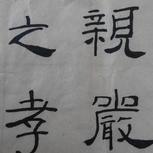 親嚴
之孝